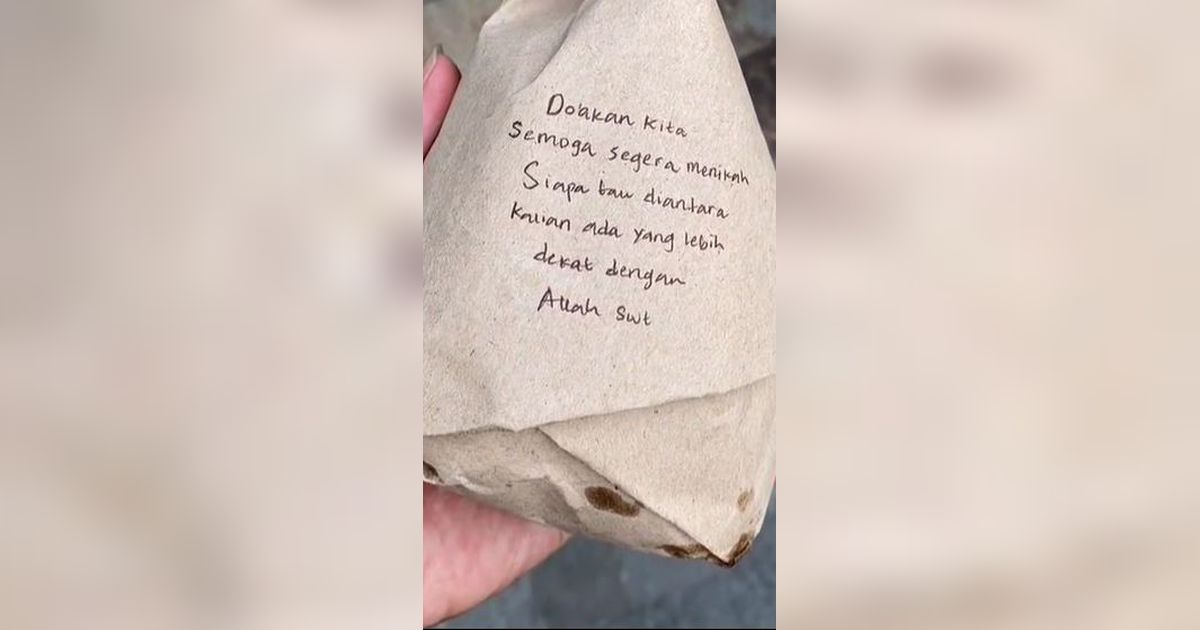 Do'akan Kita
Semoga segera menikah
Siapa tau diantara
Kalian ada yang lebih
dekat dengan
Allah swt